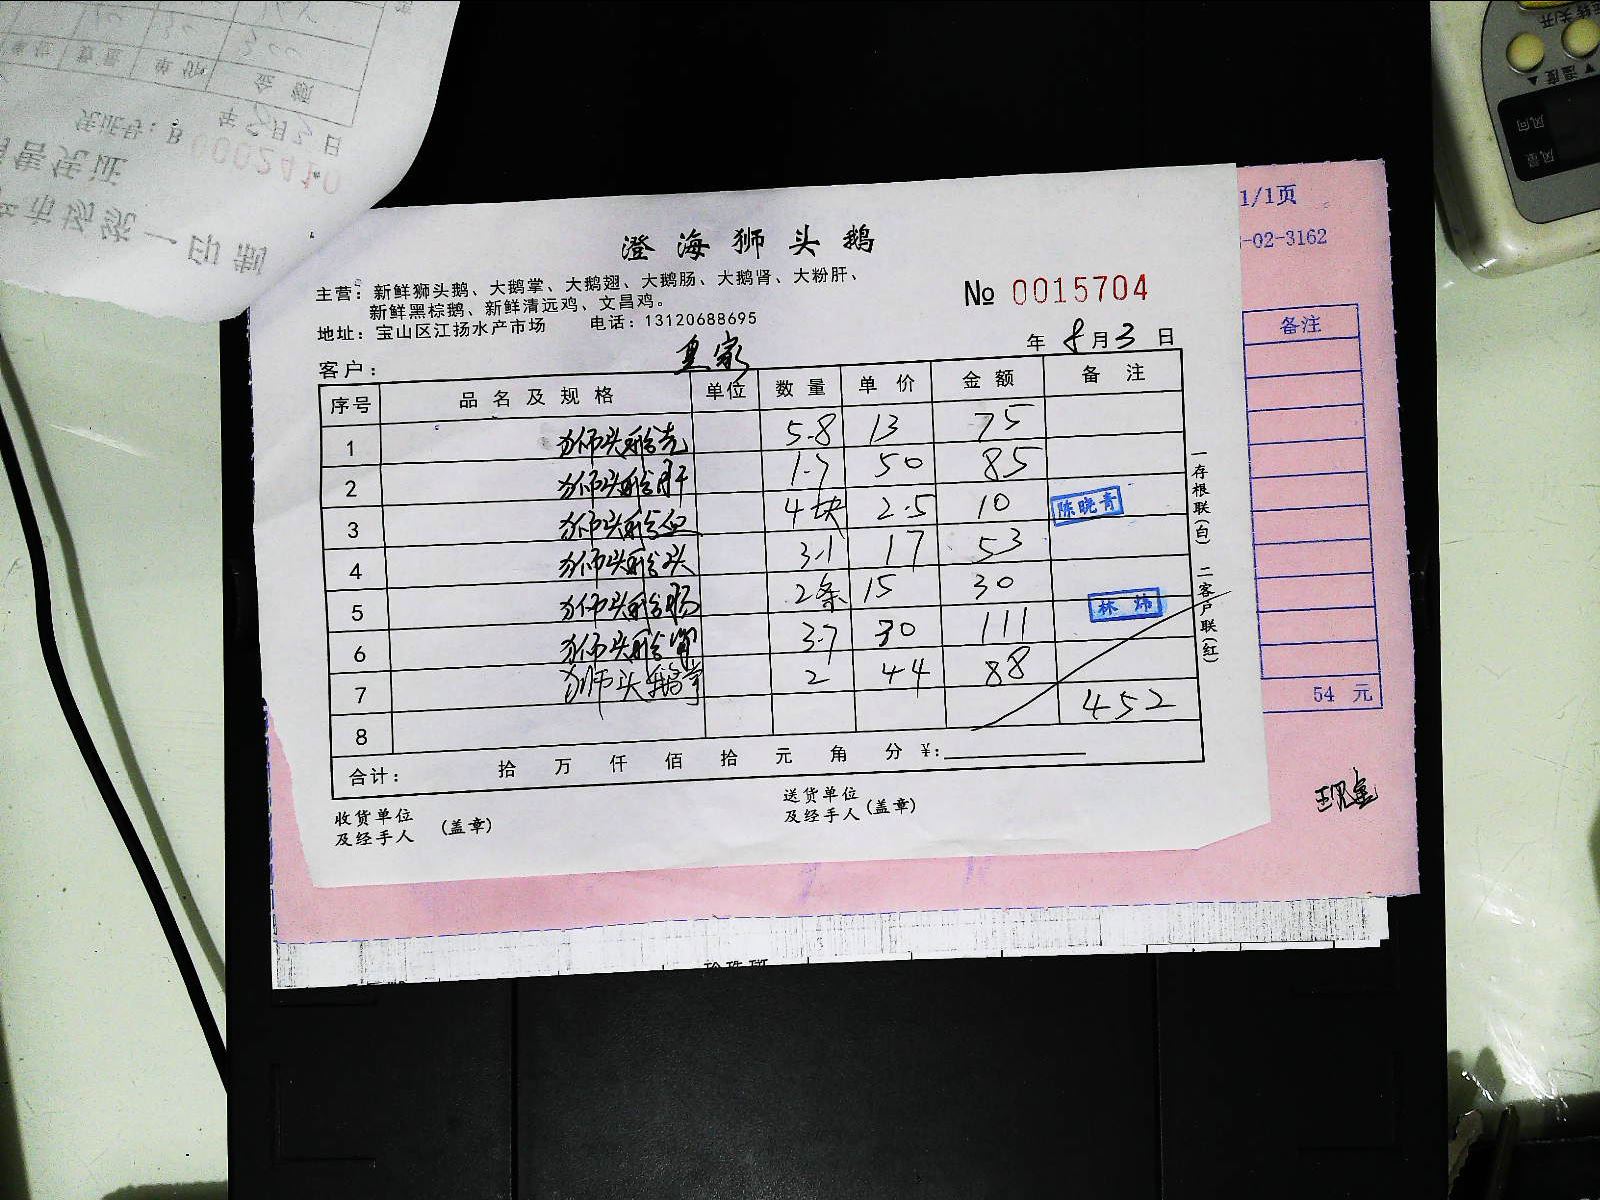 澄海狮头鹅
主营：新鲜狮头鹅、大鹅掌、大鹅翅、大鹅肠、大鹅肾、大粉肝、
新鲜黑棕鹅、新鲜清远鸡、文昌鸡。
地址：宝山区江扬水产市场 电话：13120688695
№ 0015704
年 8月3日
客户： 皇家
序号 品名及规格 单位 数量 单价 金额 备注
1 狮头鹅壳 5.8 13 75
2 狮头鹅肝 1.7 50 85
3 狮头鹅血 4块 2.5 10 陈晓青
4 狮头鹅头 3.1 17 53
5 狮头鹅肠 2条 15 30 林炜
6 狮头鹅 3.7 30 111
7 狮头鹅掌 2 44 88
8 452
合计： 拾 万 仟 佰 拾 元 角 分 ¥:
收货单位
及经手人 (盖章)
送货单位
及经手人 (盖章)
一存根联(白) 二客户联(红)
1/1页
-02-3162
备注
54 元
金额
单价
数量
单位
300
凭证号：B 0002410
年 月 日
售凭证
市场统一印制
温度
风向
风量